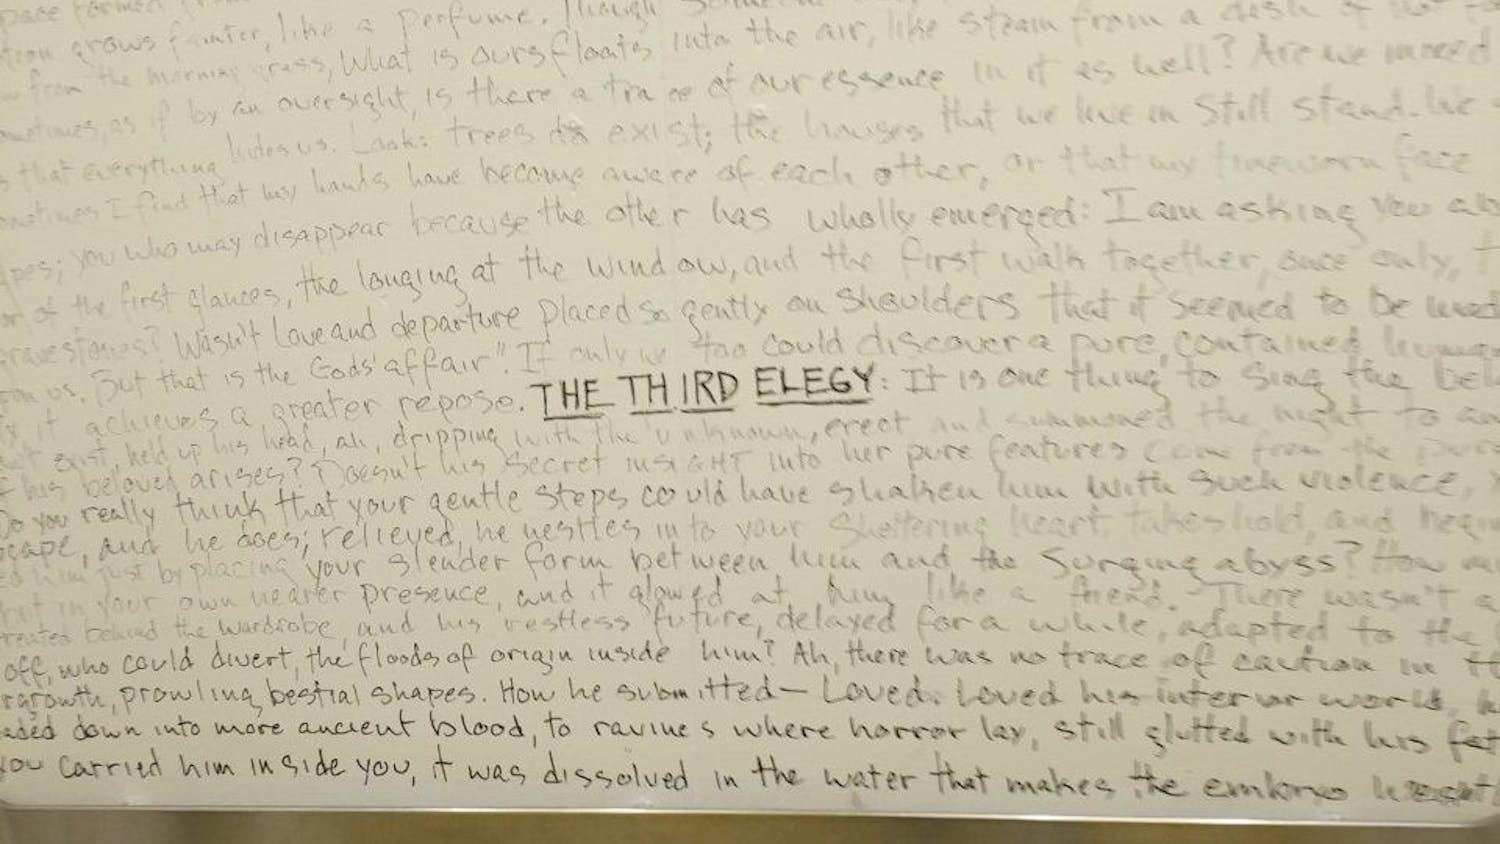 pace formed
grows fainter, like a perfume. Though someone
from the morning grass, What is ours floats into the air, like steam from a dish of hot
sometimes, as if by an oversight, is there a trace of our essence in it as well? Are we
that everything hides us. Look: trees do exist; the houses that we live in still stand. We
sometimes I find that my hands have become aware of each other, or that my timeworn face
you who may disappear because the other has wholly emerged: I am asking you
of the first glances, the longing at the window, and the first walk together, once only,
gravestones? Wasn't love and departure placed so gently on shoulders that it seemed to be
us. But that is the Gods' affair". If only we too could discover a pure, contained
it achieves a greater repose. THE THIRD ELEGY: It is one thing to sing the
exist, held up his head, ah, dripping with the unknown, erect and summoned the night to
his beloved arises? Doesn't his secret insIGHT into her pure features come from the
Do you really think that your gentle steps could have shaken him with such violence,
and he does; relieved, he nestles into your sheltering heart, takes hold, and
him just by placing your slender form between him and the surging abyss? How
in your own nearer presence, and it glowed at him like a friend. There wasn't a
behind the wardrobe, and his restless future, delayed for a while, adapted to the
off, who could divert, the floods of origin inside him? Ah, there was no trace of caution in
prowling bestial shapes. How he submitted— Loved. Loved his interior world,
down into more ancient blood, to ravines where horror lay, still glutted with his
you carried him inside you, it was dissolved in the water that makes the embryo